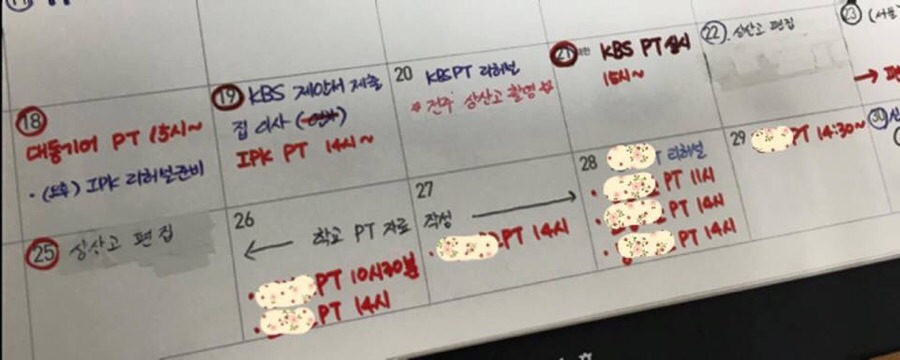 18
대동기어 PT 15시~
· (오후) IPK 리허설준비
19
KBS 제안서 제출
집 이사
IPK PT 14시~
20
KBS PT 리허설
* 전주 상산고 촬영 *
21
KBS PT
15시~
22
상산고 편집
23
(서울
25
상산고 편집
26
27
← 학교 PT 자료 작성 →
· PT 10시30분
· PT 14시
· PT 14시
28
리허설
· PT 11시
· PT 14시
· PT 14시
29
PT 14:30~
30